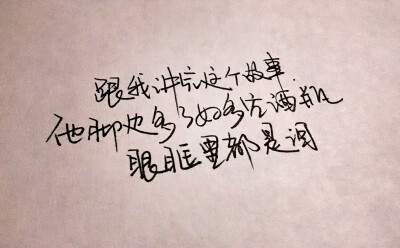 跟我讲完这个故事.
他脚边多了好多空酒瓶
眼眶里都是泪